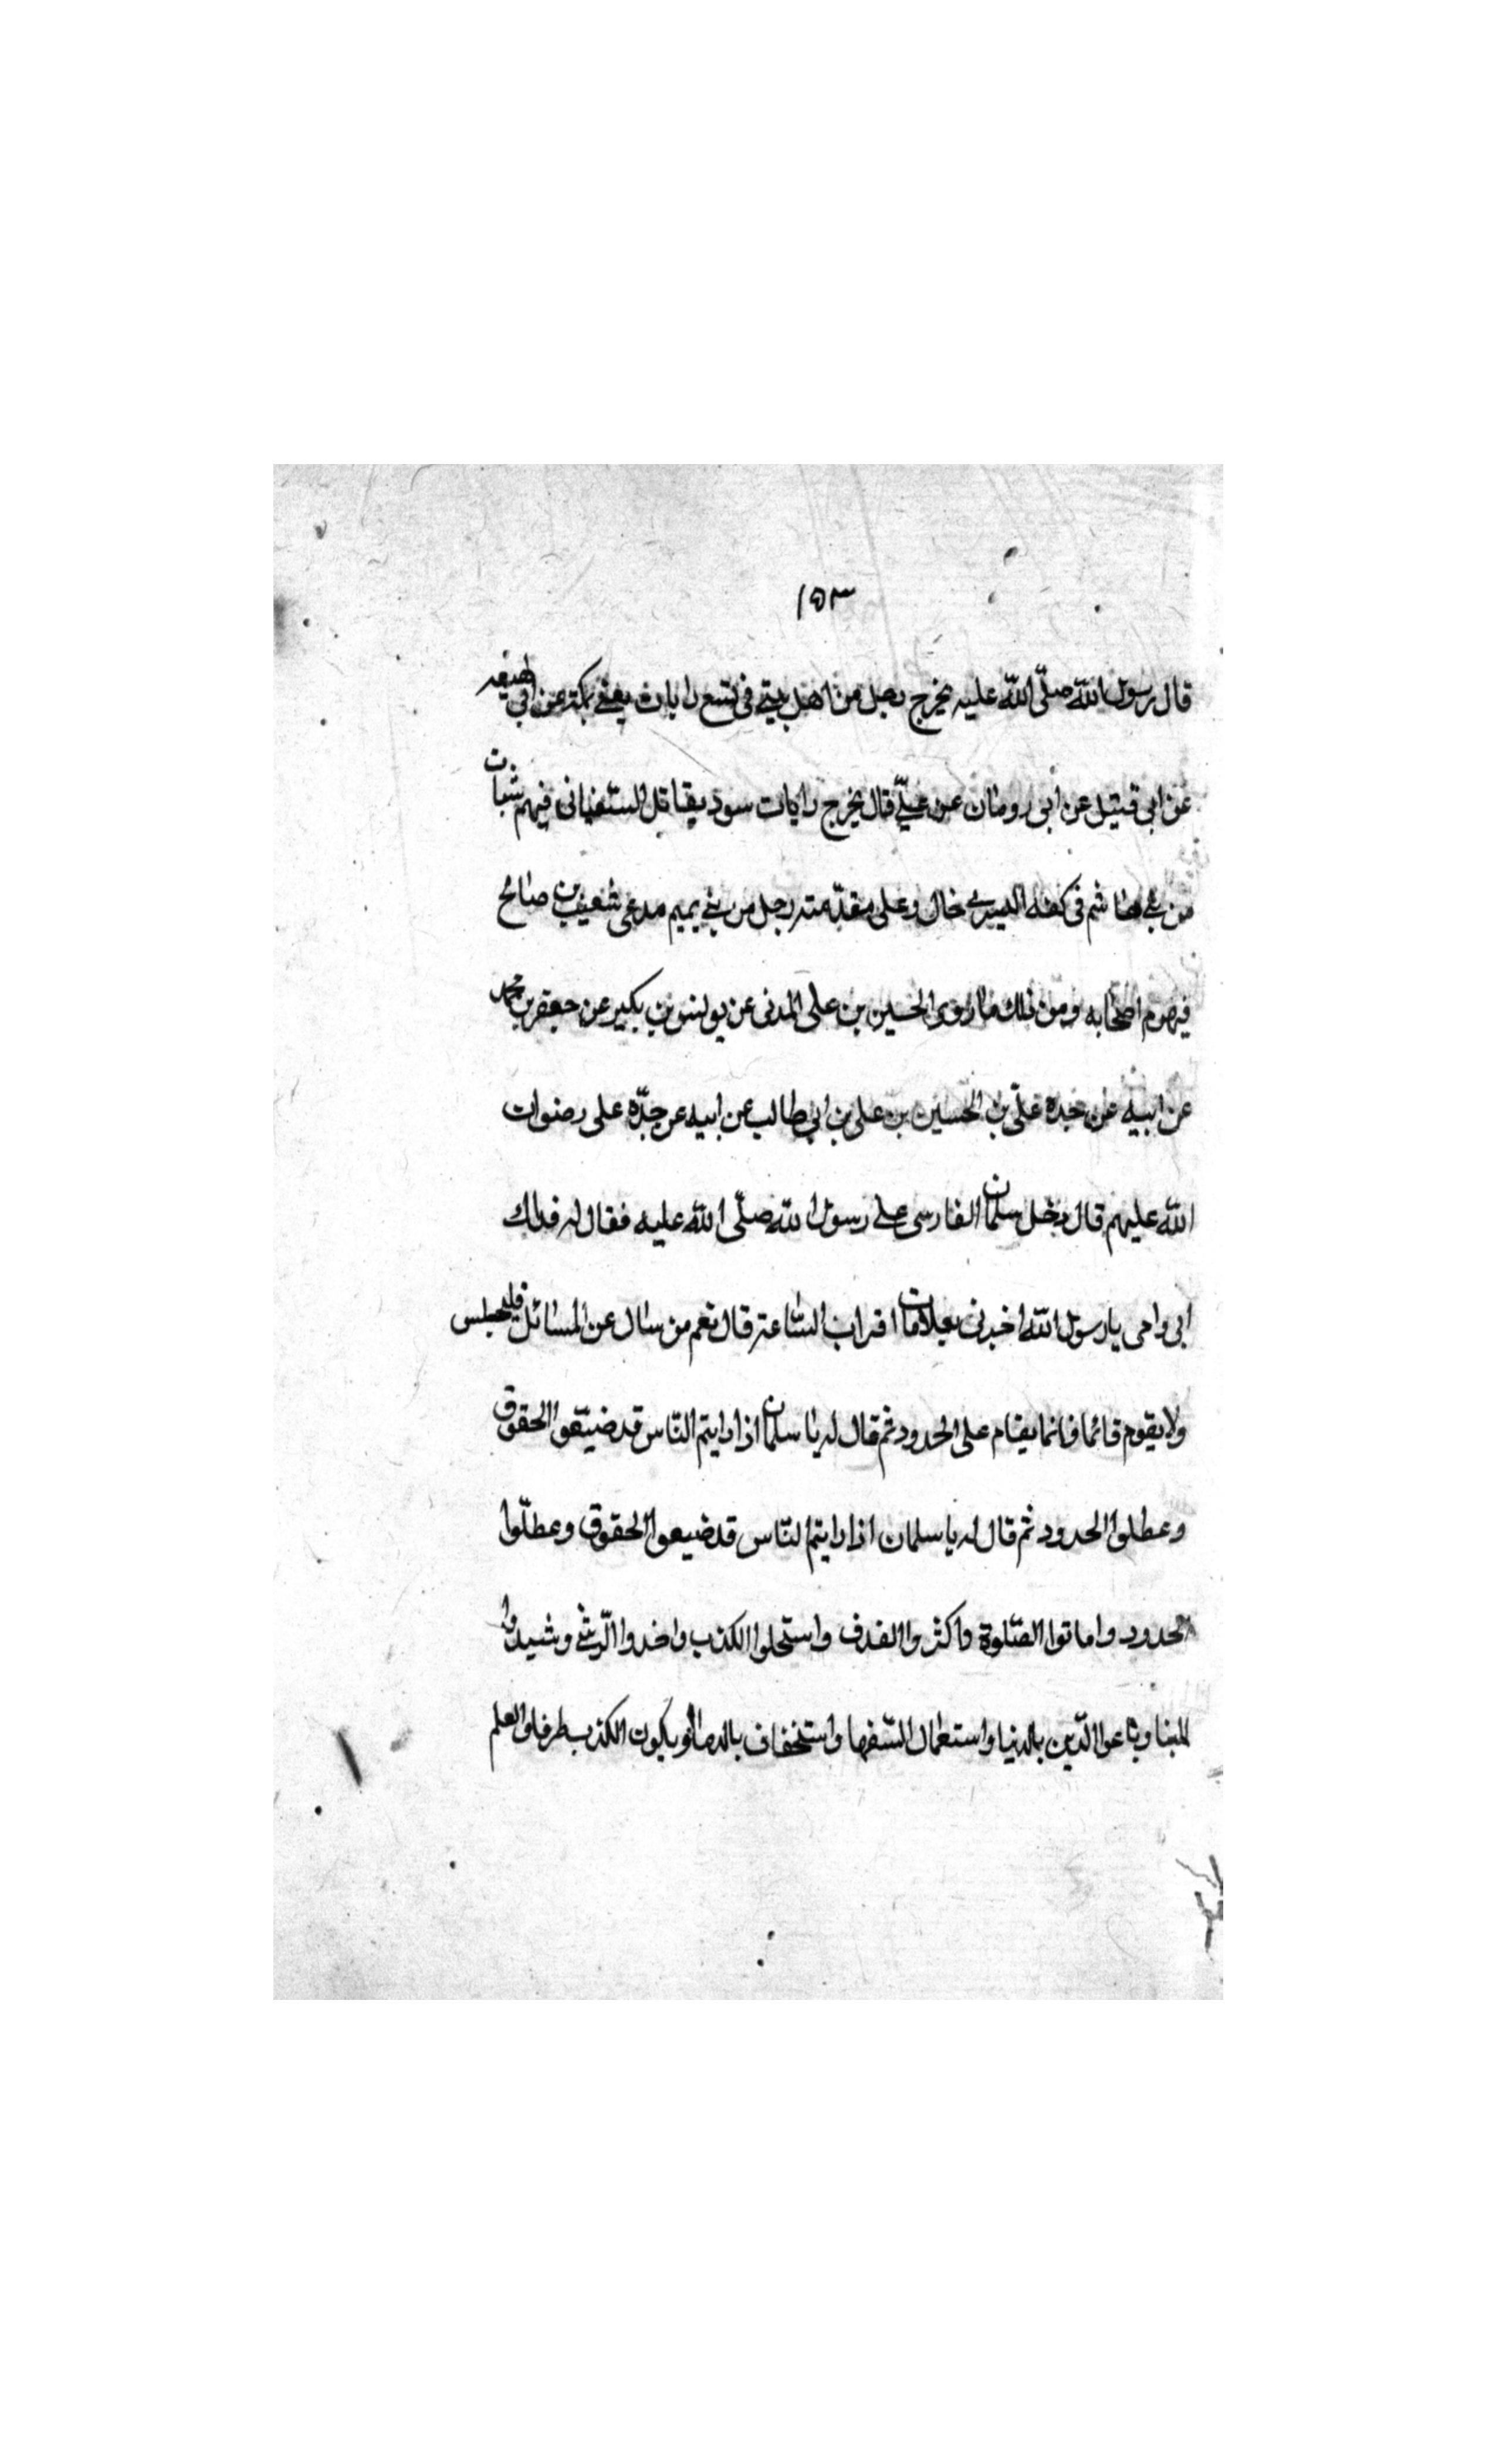 ١٥٣
قال رسول الله صلّى الله عليه يخرج رجل من اهل بيتي في تسع رايات يعني بمكة عن ابي لهيعه
عن ابي قبيل عن ابي رومان عن عليّ قال يخرج رايات سود يقاتل السّفياني فيهم شبات
من بني هاشم في كفه اليسرى خال وعلى مقدّمته رجل من بني تميم مدعى شعيب بن صالح
فيهزم اصحابه ومن ذلك ما روى الحسين بن على المدنى عن يونس بن بكير عن جعفر بن محمد
عن ابيه عن جده علىّ بن الحسين بن على بن ابي طالب عن ابيه عن جدّه على رضوان
الله عليهم قال دخل سلمان الفارسى على رسول الله صلّى الله عليه فقال له فداك
ابى وامى يا رسول الله اخبرنى بعلامات اقراب السّاعة قال نعم من سال عن المسائل فليجلس
ولا يقوم قائما فانما يقام على الحدود ثم قال له يا سلمان اذا رايتم النّاس قد ضيّعوا الحقوق
وعطلوا الحدود ثم قال له يا سلمان اذا رايتم النّاس قد ضيعوا الحقوق وعطلّوا
الحدود واماتوا الصّلوة واكثروا القذف واستحلوا الكذب واخدوا الرّشي وشيدوا
البنا وباعوا الدّين بالدنيا واستعمال السّفها واستخفاف بالدما ويكون الكذب طرفا والعلم